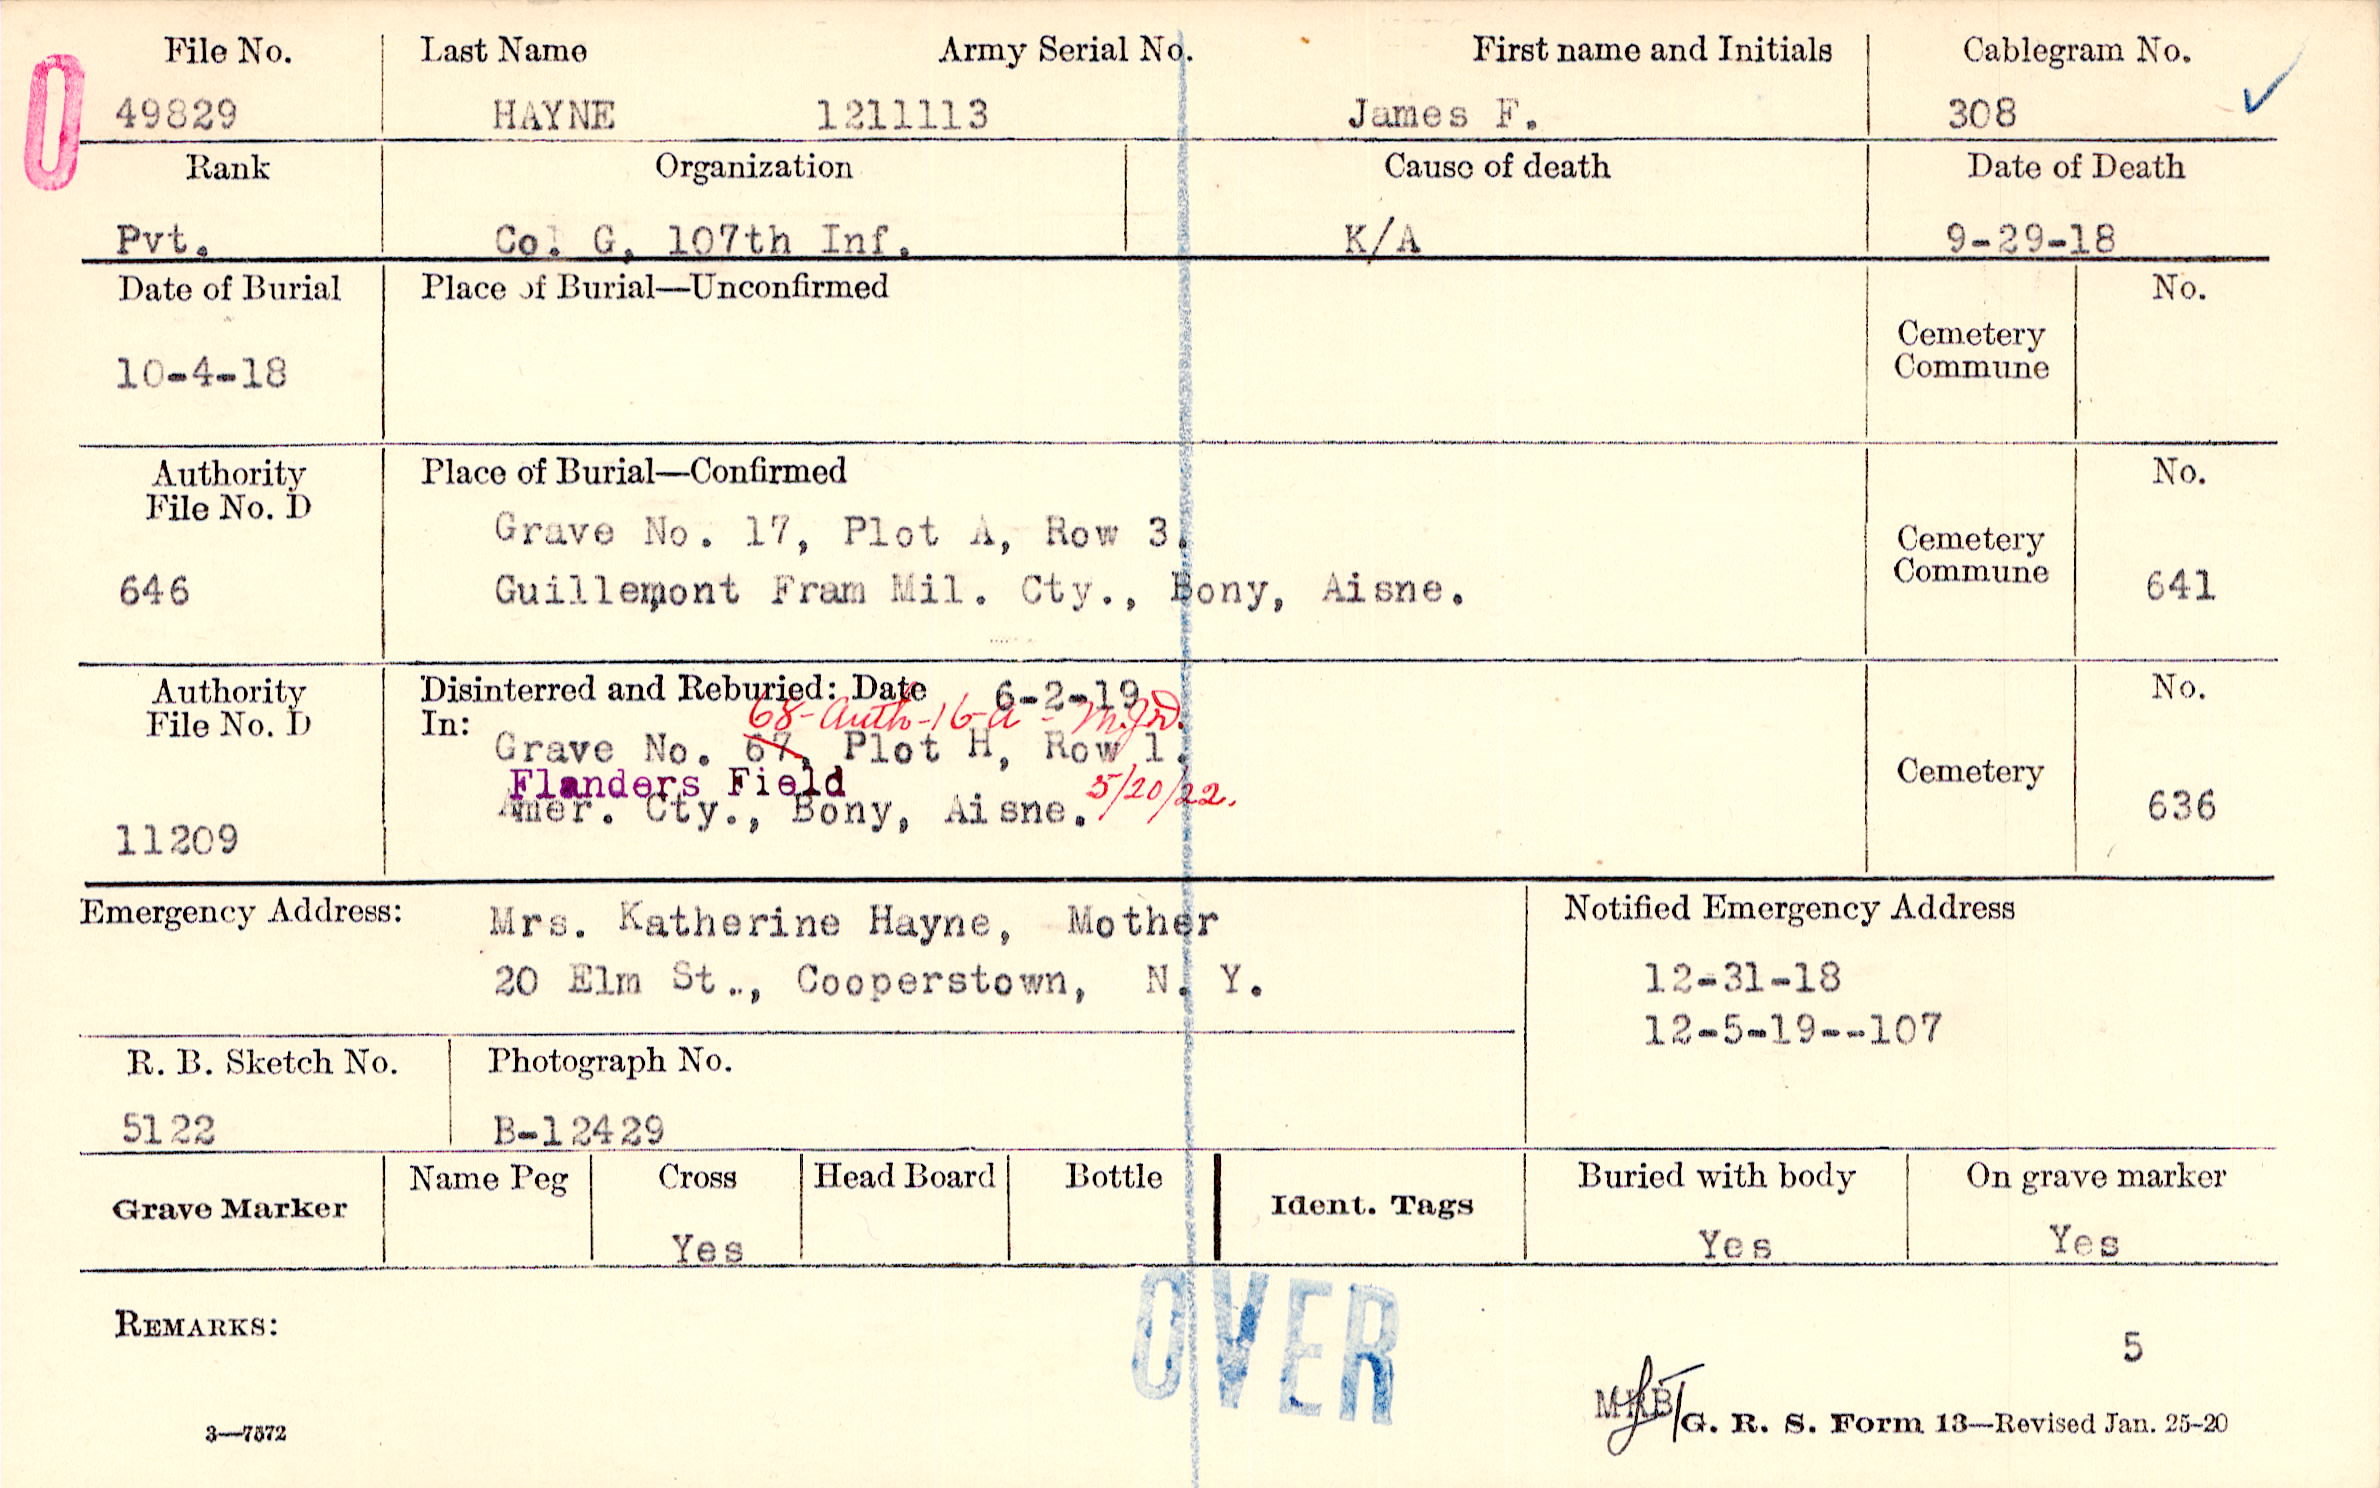 File No. Last Name Army Serial No. First name and Initials Cablegram No.
0 49829 HAYNE 1211113 James F. 308
Rank Organization Cause of death Date of Death
Pvt. Co. G, 107th Inf. K/A 9-29-18
Date of Burial Place of Burial—Unconfirmed No.
Cemetery
Commune
10-4-18
Authority Place of Burial—Confirmed No.
File No. D
Grave No. 17, Plot A, Row 3.
Cemetery
Commune
646 Guillemont Fram Mil. Cty., Bony, Aisne. 641
Authority Disinterred and Reburied: Date 6-2-19 No.
File No. D In:
68-Auth-16-A-
Grave No. 67, Plot H, Row 1.
Flanders Field 5/20/22.
Cemetery
Amer. Cty., Bony, Aisne. 636
11209
Emergency Address: Mrs. Katherine Hayne, Mother Notified Emergency Address
20 Elm St., Cooperstown, N. Y. 12-31-18
12-5-19--107
R. B. Sketch No. Photograph No.
5122 B-12429
Grave Marker Name Peg Cross Head Board Bottle Ident. Tags Buried with body On grave marker
Yes Yes Yes
OVER
REMARKS:
5
MRB
3—7572 G. R. S. Form 13—Revised Jan. 25-20